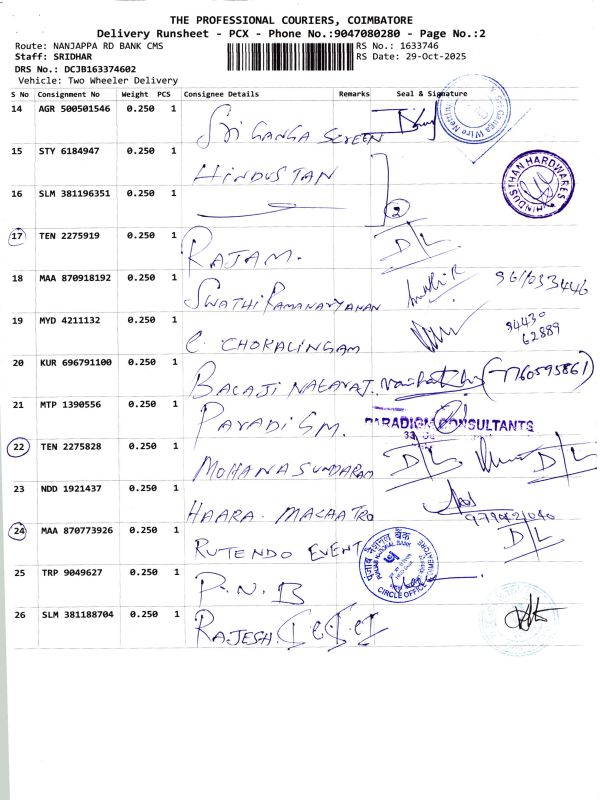 THE PROFESSIONAL COURIERS, COIMBATORE
Delivery Runsheet - PCX - Phone No.:9047080280 - Page No.:2
Route: NANJAPPA RD BANK CMS
RS No.: 1633746
Staff: SRIDHAR
RS Date: 29-Oct-2025
DRS No.: DCJB163374602
Vehicle: Two Wheeler Delivery
S No Consignment No Weight PCS Consignee Details Remarks Seal & Signature
14 AGR 500501546 0.250 1 Sri GANGA SCREEN
15 STY 6184947 0.250 1 HINDUSTAN
HINDUSTHAN HARDWARES
16 SLM 381196351 0.250 1 2
17 TEN 2275919 0.250 1 RAJAM. D/L
18 MAA 870918192 0.250 1 SWATHI RAMANARYANAN
19 MYD 4211132 0.250 1 C. CHOKALINGAM 94430
62889
20 KUR 696791100 0.250 1 BALAJI NATARAJ. (7760595861)
21 MTP 1390556 0.250 1 PARADIGM.
PARADIGM CONSULTANTS
22 TEN 2275828 0.250 1 MOHANA SUNDARAM D/L D/L
23 NDD 1921437 0.250 1 HAARA. MACHATRO
24 MAA 870773926 0.250 1 RUTENDO EVENT D/L
पंजाब नैशनल बैंक
PUNJAB NATIONAL BANK
CIRCLE OFFICE
COIMBATORE
25 TRP 9049627 0.250 1 P.N.B
26 SLM 381188704 0.250 1 RAJESH.